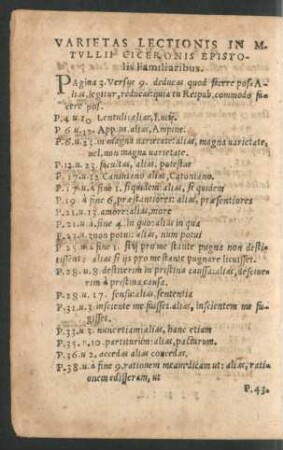 VARIETAS LECTIONIS IN M.
TVLLII CICERONIS EPISTO-
lis Familiaribus.
PAgina 3. Versu 9. deducas quod facere pos. A-
lias, legitur, reducas: quia tu Reipub. commodo fa
cere pos.
P. 4. u. 19 Lentuli: alias,
P. 6. u. 12. App. in. alias, Ampine.
P. 6. u. 23. in magna uarietate: alias, magna uarietate,
uel, non magna uarietate.
P. 12. u. 23. facultas, alias, potestas
P. 17. u. 32 Caniniano alias, Catoniano.
P. 17. u. à fine 1. siquidem alias, si quidem
P. 19 à fine 6, præstantiores: alias, præsentiores
P. 21. u. 13. amore: alias, more
P. 21. u. à fine 4. in quo: alias in qua
P. 23. u. 2. non potui: alias, num potui
P. 25. u. à fine 1. si ij pro me stante pugna non desti-
tissent: alias si ijs pro me stante pugnare licuisset.
P. 28. u. 8. destiterim in pristina caussa: alias, desciue
rim à pristina causa.
P. 28. u. 17. sensu: alias, sententia
P. 31. u. 3 insciente me fuisset. alias, inscientem me fu-
gisset.
P. 33. u. 3 nunc etiam: alias, hanc etiam
P. 35. u. 10. partiturum: alias, pacturum.
P. 36. u. 2. accedas alias concedas.
P. 38. u. à fine 9. rationem meam dicam ut: alias, rati-
onem edisseram, ut
P. 43.